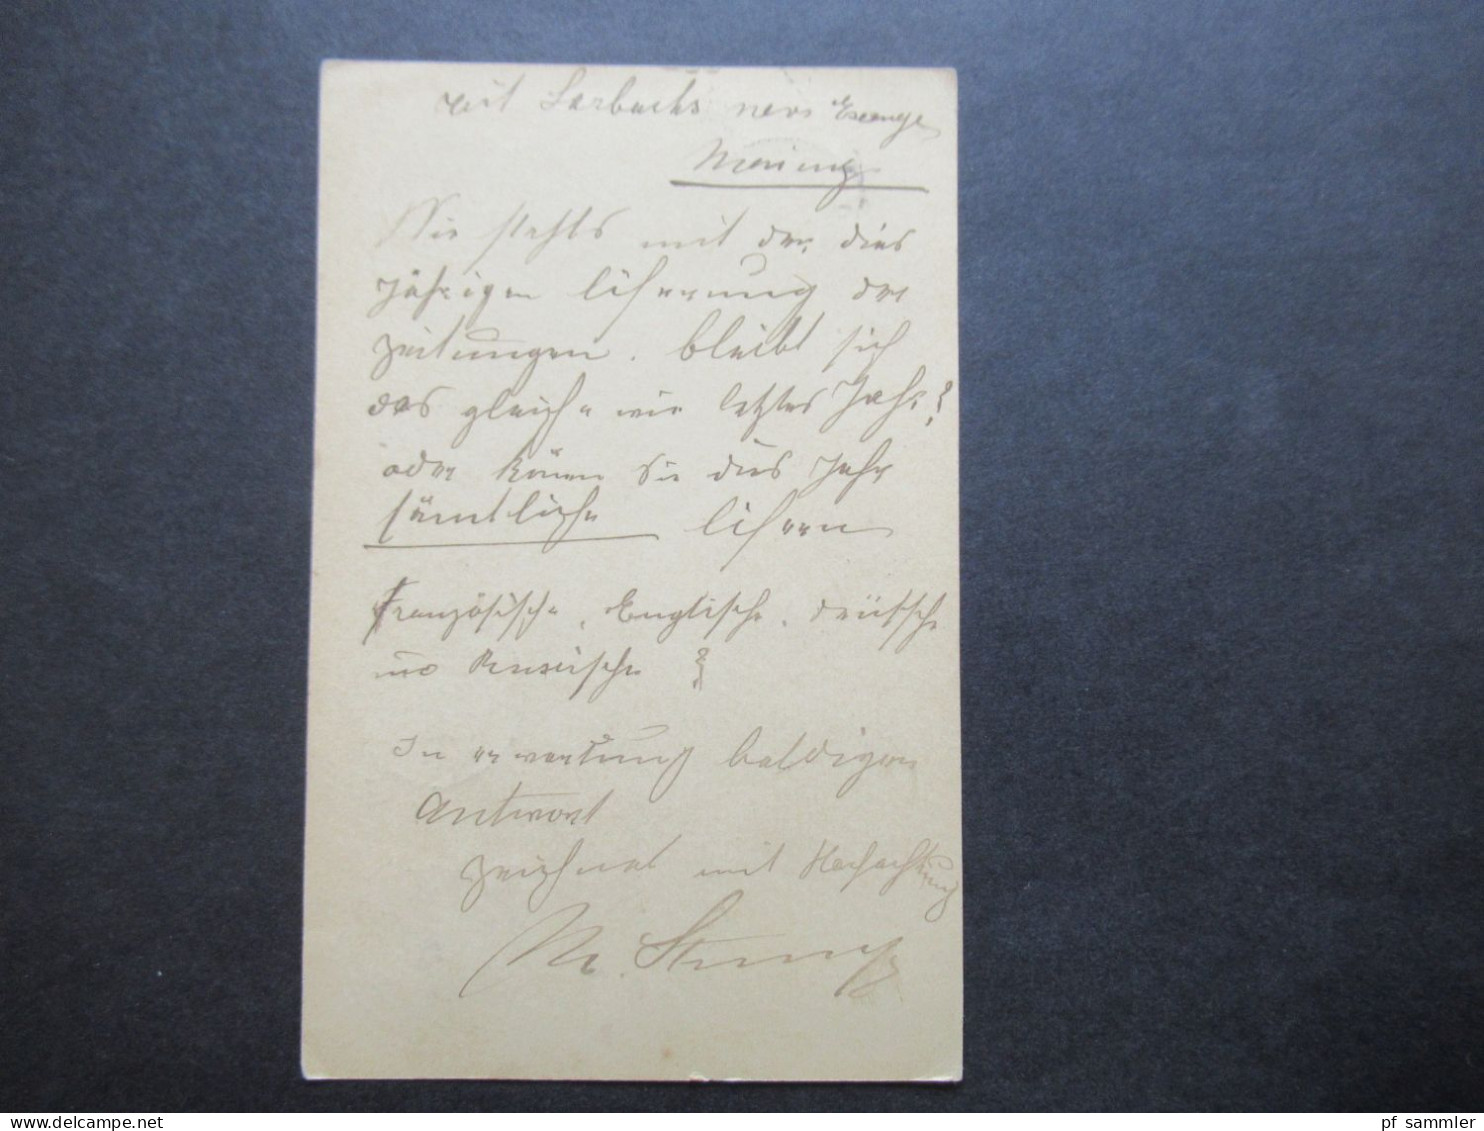 Saarbachs news Exchange
Mainz
Wie stehts mit der dies
jährigen liferung der
zeitungen. bleibt sich
das gleiche wie letztes Jahr?
oder könen Sie dies Jahr
sämtliche lifern
Französische, Englische, deütsche
und Russische?
In erwartung baldigen
Antwort
zeichnet mit Hochachtung
M. Stumpf
www.delcampe.net
pf_sammler